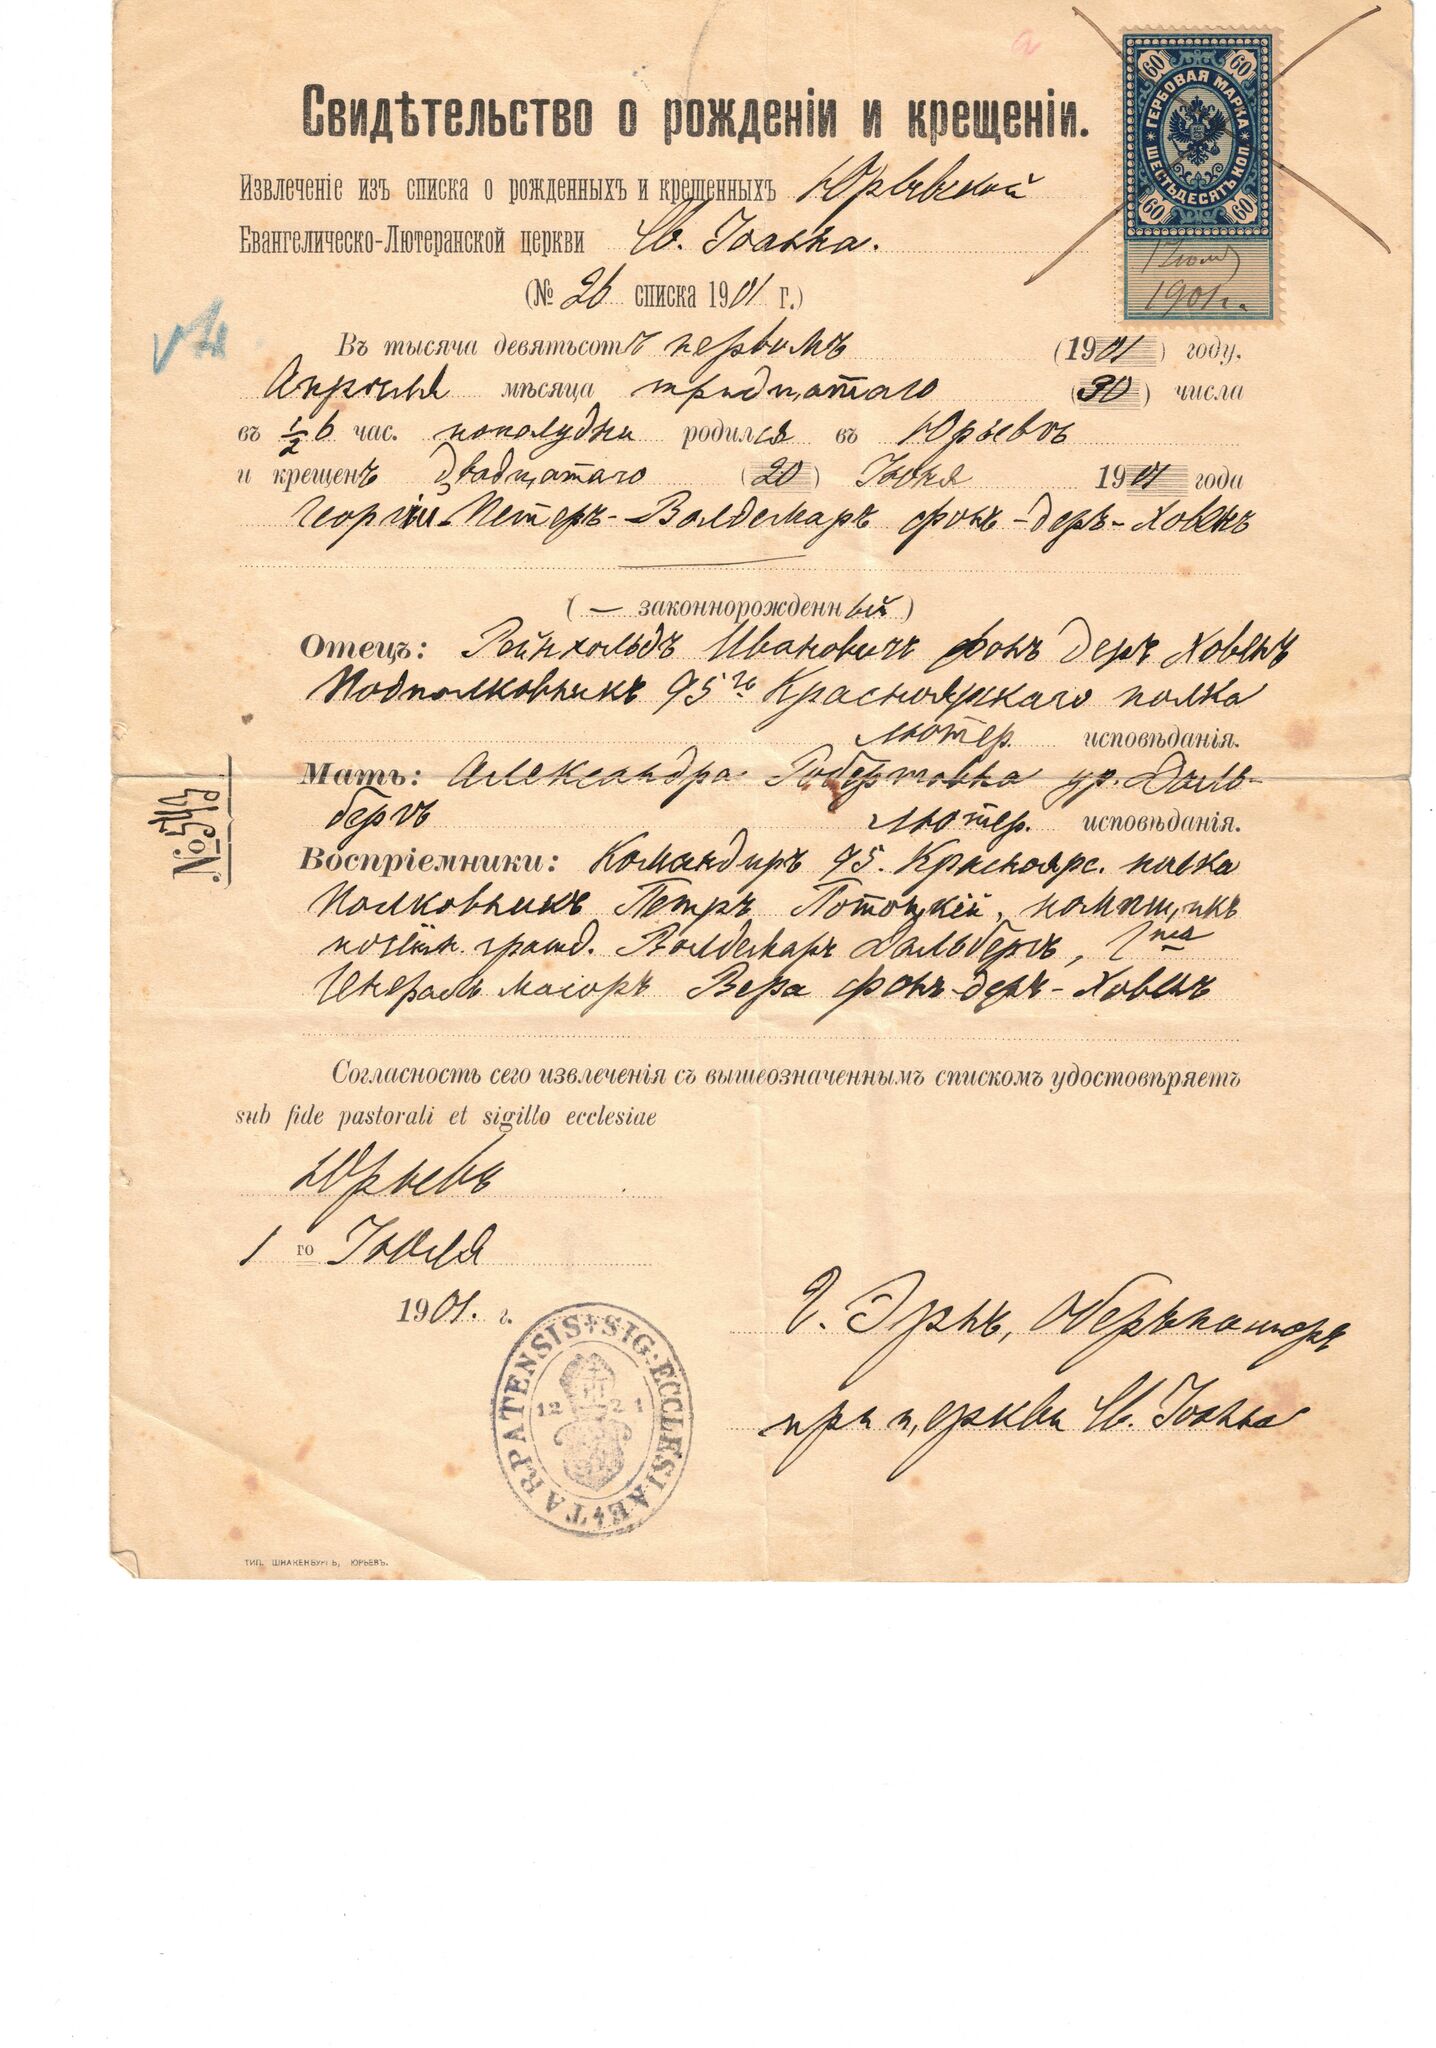 Свидѣтельство о рожденіи и крещеніи.
Извлеченіе изъ списка о рожденныхъ и крещенныхъ Юрьевской
Евангелическо-Лютеранской церкви Св. Іоанна.
(№ 26 списка 1901 г.)
ГЕРБОВАЯ МАРКА
ШЕСТЬДЕСЯТЪ КОП.
60 60 60 60
1901 г.
Въ тысяча девятьсотъ первомъ (1901) году,
Апрѣля мѣсяца тридцатаго (30) числа
въ ½ 6 час. пополудни родился въ Юрьевѣ
и крещенъ двадцатаго (20) Іюня 1901 года
Георгій-Петеръ-Валдемаръ фонъ-деръ-Ховенъ
(— законнорожденный)
Отецъ: Рейнхольдъ Ивановичъ фонъ деръ Ховенъ
Подполковникъ 95го Красноярскаго полка
лютер. исповѣданія.
Мать: Александра Робертовна ур. Даль-
бергъ лютер. исповѣданія.
№ 543
Воспріемники: Командиръ 95. Красноярс. полка
Полковникъ Петръ Потоцкій,
гражд. Валдемаръ Дальбергъ,
Генералъ маіоръ Вера фонъ-деръ-Ховенъ
Согласность сего извлеченія съ вышеозначеннымъ спискомъ удостовѣряетъ
sub fide pastorali et sigillo ecclesiae
Юрьевъ
1го Іюля
1901. г.
Г. Эрнъ, Оберъпасторъ
при церкви Св. Іоанна
SIG. ECCLESIAE TARPATENSIS
1221
ТИП. ШНАКЕНБУРГЪ, ЮРЬЕВЪ.